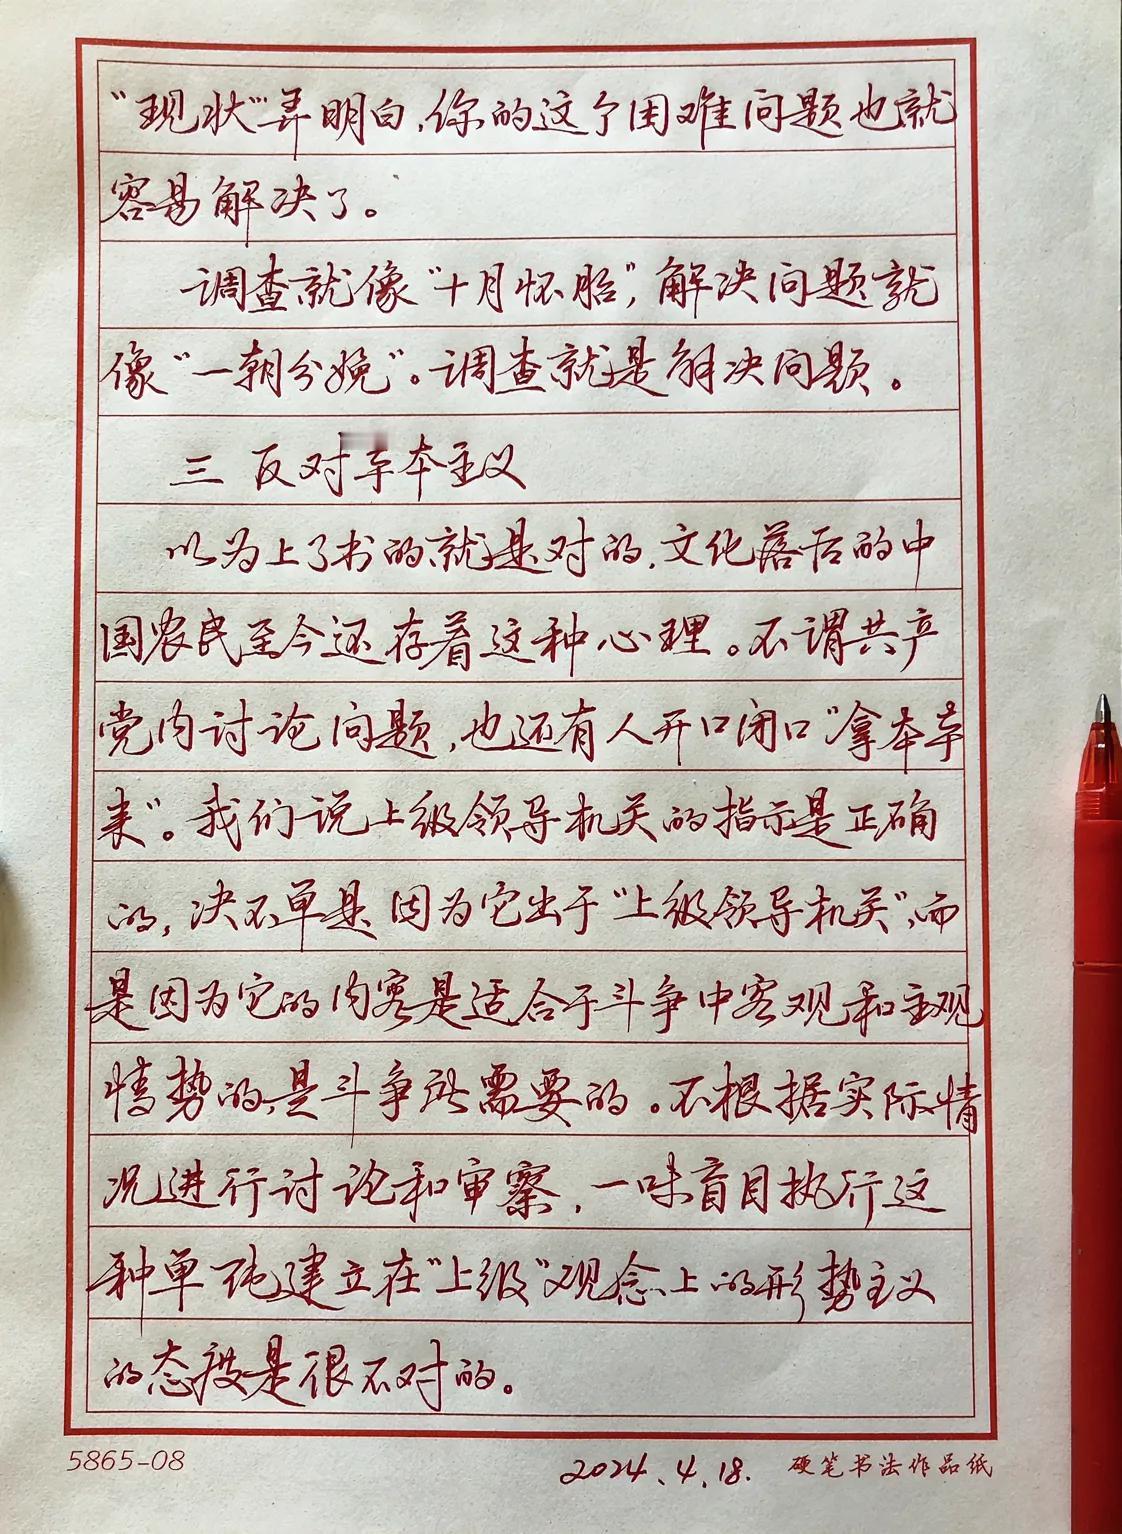 “现状”弄明白，你的这个困难问题也就
容易解决了。
调查就像“十月怀胎”，解决问题就
像“一朝分娩”。调查就是解决问题。
三 反对本本主义
以为上了书的就是对的，文化落后的中
国农民至今还存着这种心理。不谓共产
党内讨论问题，也还有人开口闭口“拿本本
来”。我们说上级领导机关的指示是正确
的，决不单是因为它出于“上级领导机关”，而
是因为它的内容是适合于斗争中客观和主观
情势的，是斗争所需要的。不根据实际情
况进行讨论和审察，一味盲目执行这
种单纯建立在“上级”观念上的形势主义
的态度是很不对的。
5865-08
2024.4.18.
硬笔书法作品纸